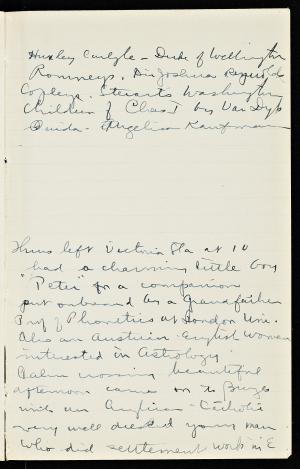 Huxley Carlyle – Duke of Wellington
Romneys. Sir Joshua Reynolds
Copleys. Stuarts Washington
Children of Chas I by Van Dyke
Ouida – Angelica Kaufmann
Thurs left Victoria Sta at 10
had a charming little boy
"Peter" for a companion
put onboard by a Grandfather
Prof of Phonetics at London Uni.
Also an Austrian-English woman
interested in Astrology.
Calm crossing beautiful
afternoon came on to Bruges
with an Anglican-Catholic
very well dressed young man
who did settlement work in E